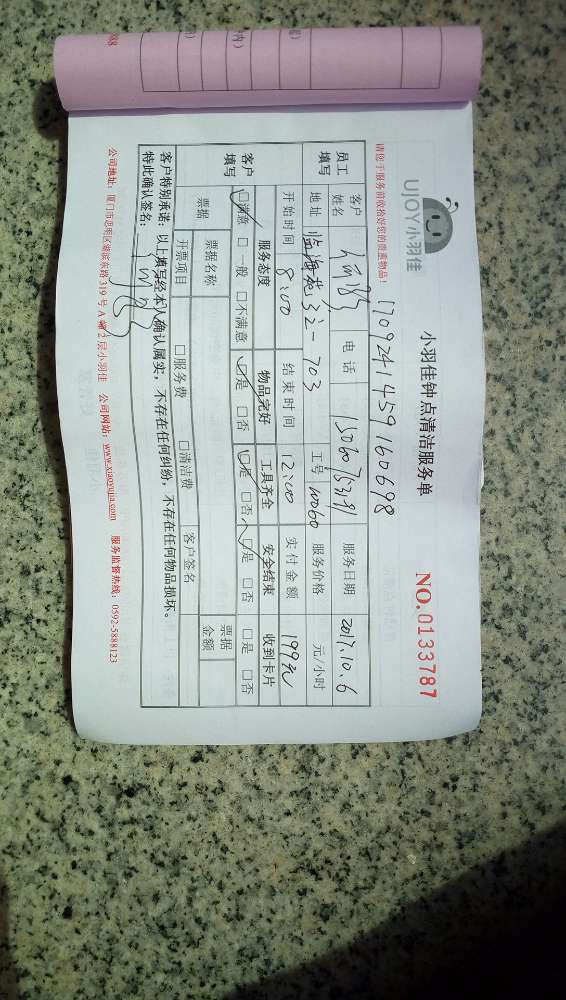 UJOY小羽佳
小羽佳钟点清洁服务单
NO.0133787
请您于服务前收拾好您的贵重物品!
170924145916 0698
员工填写
客户姓名
电话
服务日期 2017.10.6
地址 临海苑32-703
工号 10060
服务价格 元/小时
开始时间 8:00
结束时间 12:00
实付金额 199元
客户填写
服务态度 物品完好 工具齐全 安全结束 收到卡片
☑满意 □一般 □不满意 ☑是 □否 ☑是 □否 ☑是 □否 □是 □否
票据
票据名称
票据金额
开票项目 □服务费 □清洁费
客户签名
客户特别承诺:以上填写经本人确认属实,不存在任何纠纷,不存在任何物品损坏。
特此确认签名:
公司地址:厦门市思明区湖滨东路 319 号 A 幢 2 层小羽佳 公司网站:www.xiaoyujia.com 服务监督热线:0592-5888123